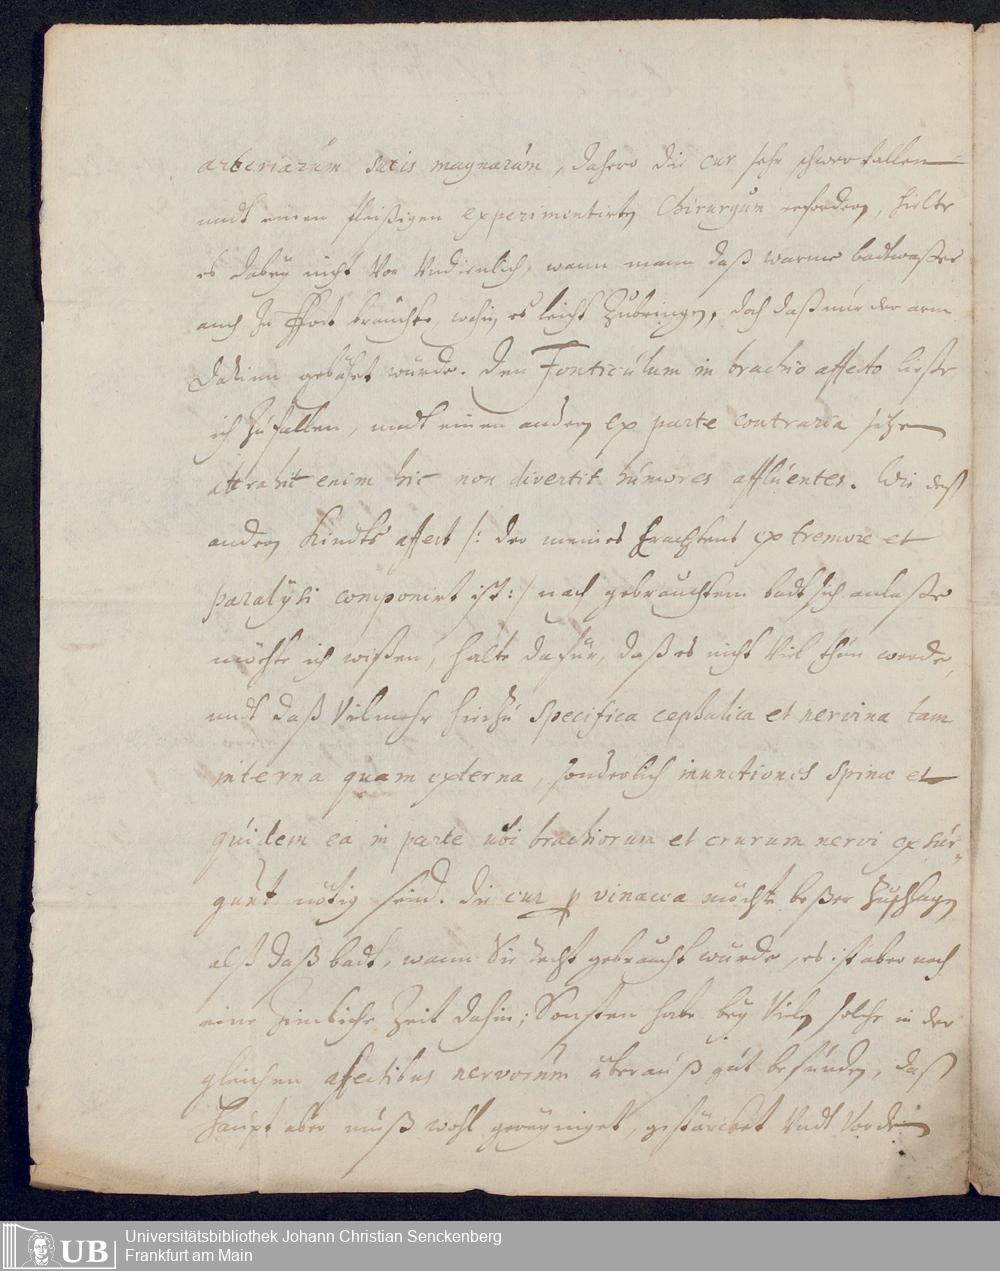 arteriarum satis magnarum, dahero die cur sehr schwer fallen
undt einen fleißigen experimentirten Chirurgum erfordern, hielte
es dabey nicht vor undienlich, wann mann daß warme badtwaßer
auch zu Hort brauchte, wohin es leicht zubringen, doch daß nur der arm
darinn gebähet wurde. Den Fonticulum in brachio affecto ließe
ich zufallen, undt einen andern ex parte contraria setzen
attrahit enim hic non divertit humores affluentes. Wie deß
andern Kindts affect /: der meines Erachtens ex tremore et
paralysi componirt ist :/ nach gebrauchtem badt sich anlaße
möchte ich wißen, halte dafür, daß es nicht viel thun werde,
undt daß vielmehr hierzu specifica cephalica et nervina tam
interna quam externa, sonderlich inunctiones spinæ et
quidem ea in parte ubi brachiorum et crurum nervi exsur-
gunt nötig seind. Die cur p vinacea möchte beßer zuschlagen
alß daß badt, wann Sie recht gebraucht wurde, es ist aber noch
eine zimbliche Zeit dahin; Sonsten habe bey vielen solche in der
gleichen affectibus nervorum uberauß gut befunden, daß
Haupt aber muß wohl gereyniget, gestärcket undt vor dem
UB
Universitätsbibliothek Johann Christian Senckenberg
Frankfurt am Main